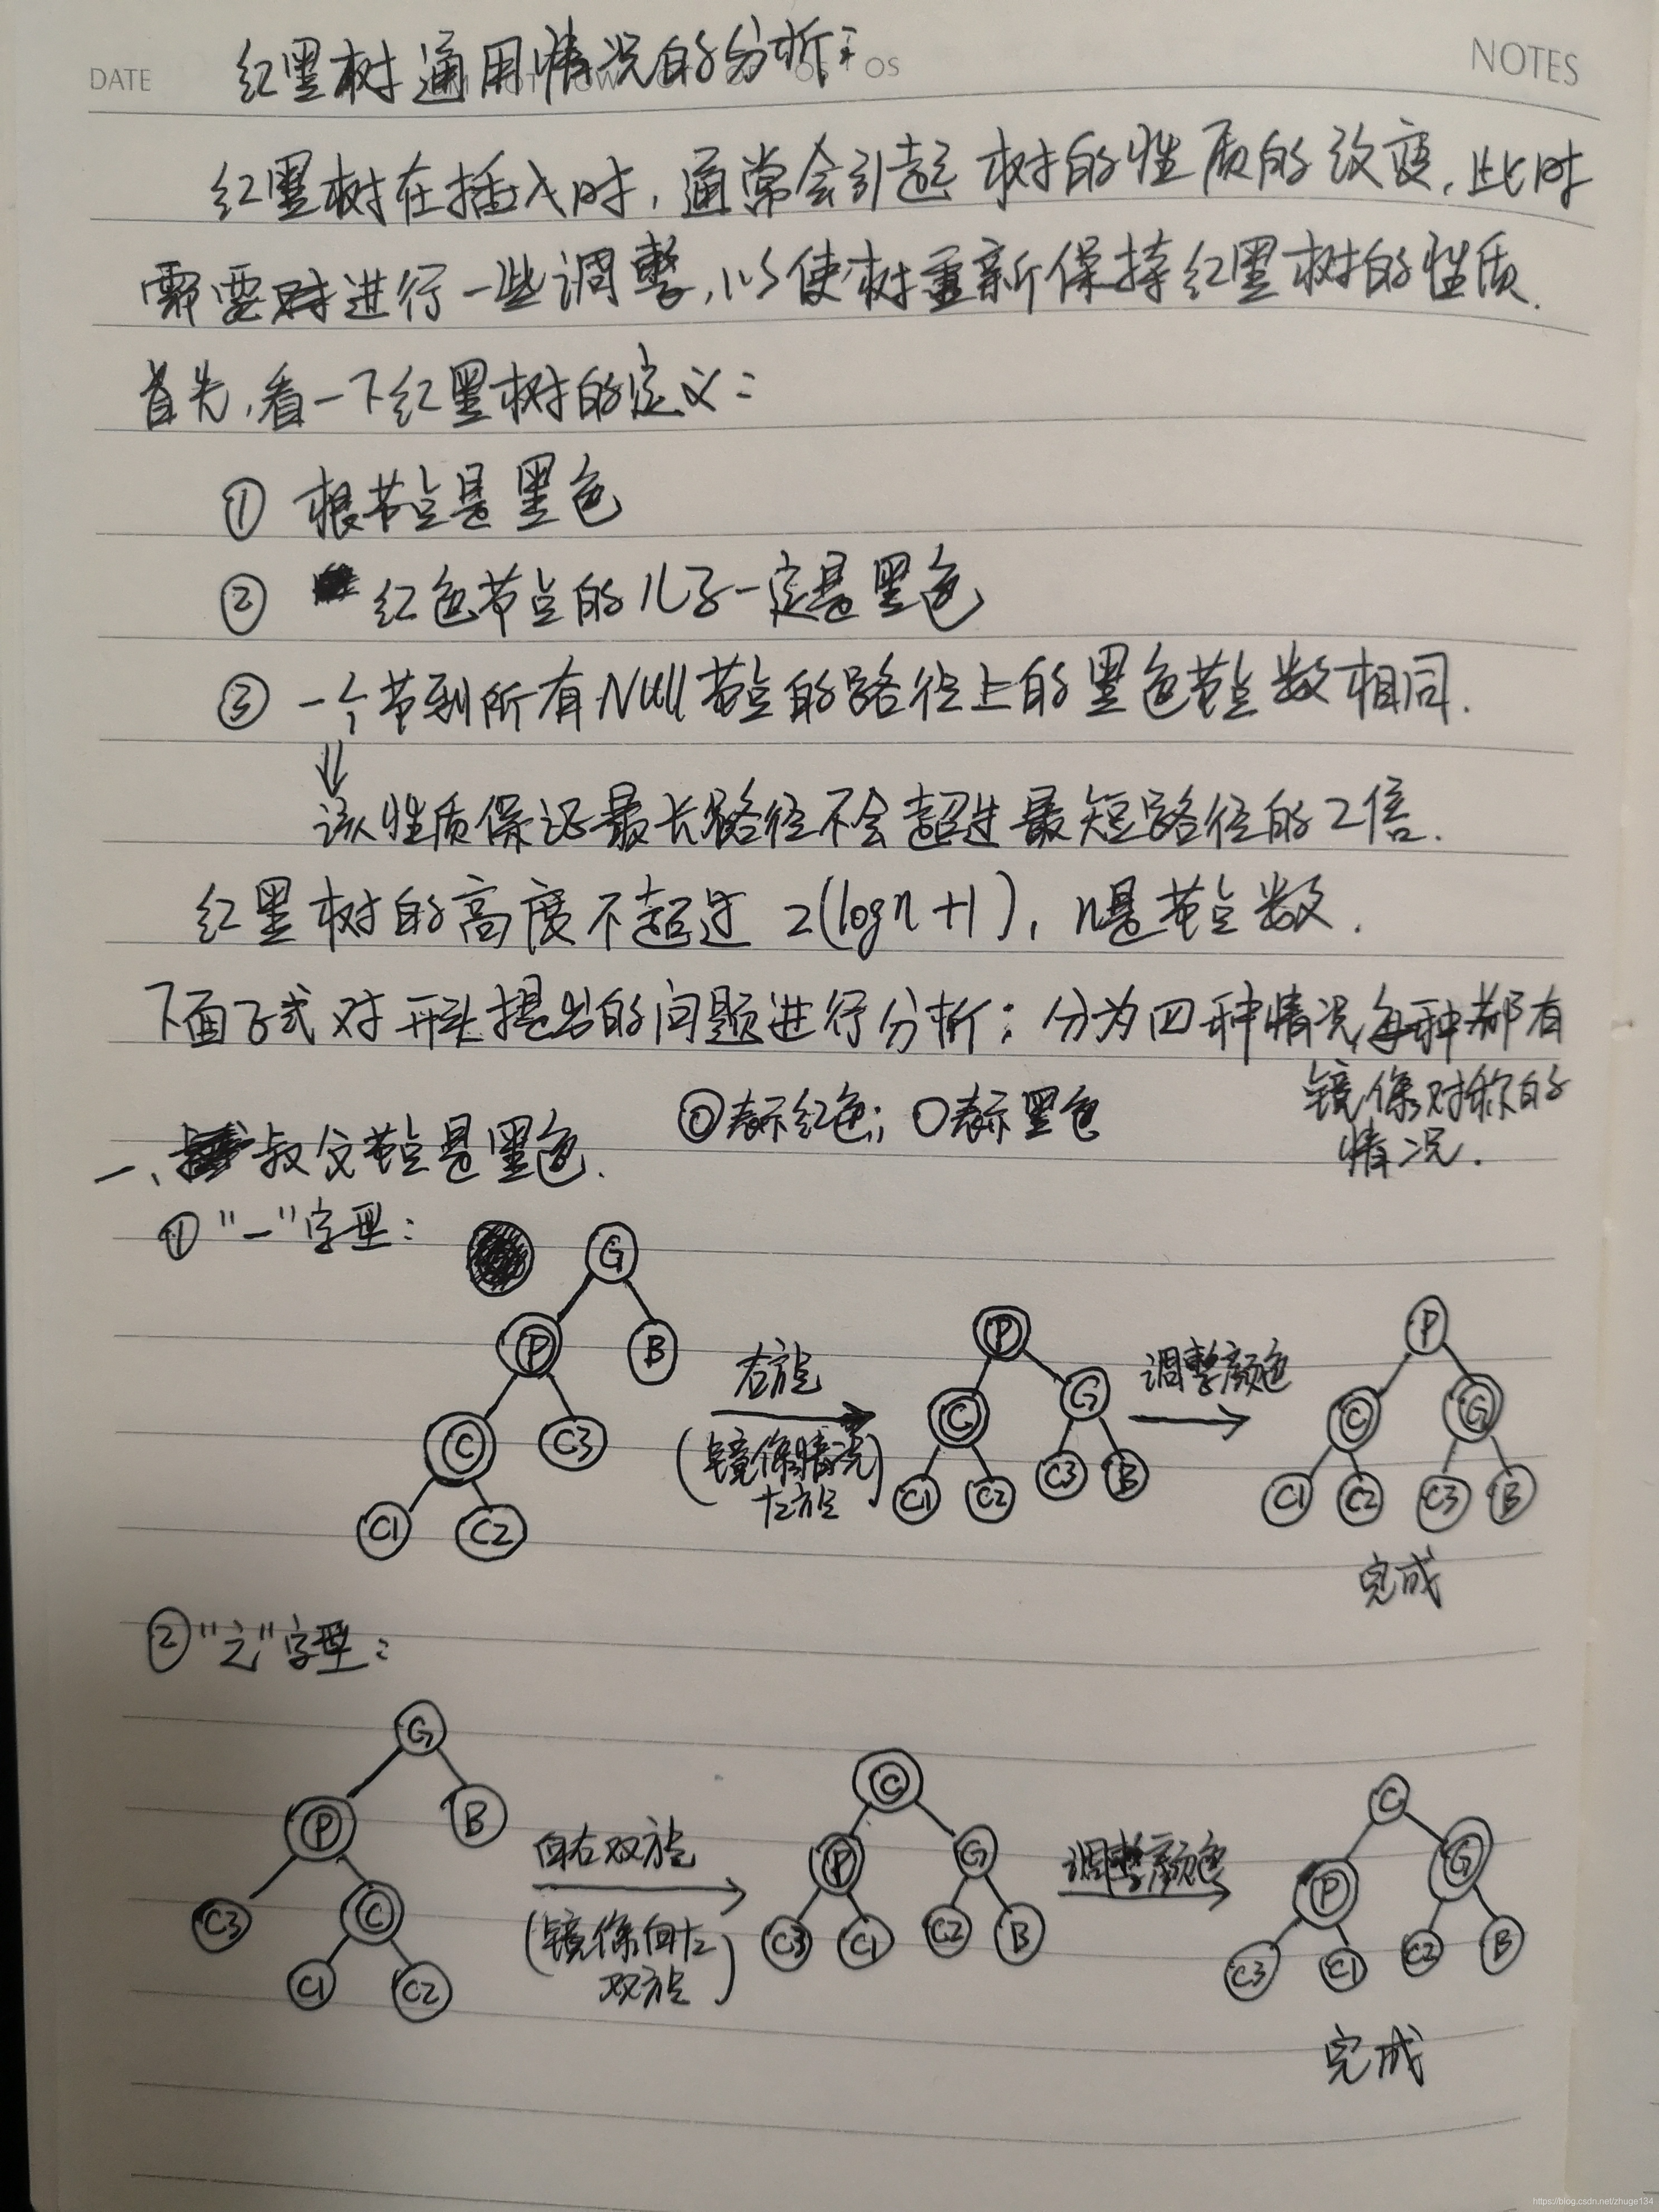 DATE
NOTES
红黑树通用情况的分析:
红黑树在插入时,通常会引起树的性质的改变,此时
需要进行一些调整,以使树重新保持红黑树的性质.
首先,看一下红黑树的定义:
① 根节点是黑色
② 红色节点的儿子一定是黑色
③ 一个节到所有Null节点的路径上的黑色节点数相同.
⇓
该性质保证最长路径不会超过最短路径的2倍.
红黑树的高度不超过 2(logn+1), n是节点数.
下面正式对开头提出的问题进行分析:分为四种情况,每种都有
镜像对称的
情况.
◎表示红色; ○表示黑色
一、叔父节点是黑色.
①"一"字型:
G
P B
C C3
C1 C2
右旋
(镜像情况
左旋)
P
C G
C1 C2 C3 B
调整颜色
P
C G
C1 C2 C3 B
完成
②"之"字型:
G
P B
C3 C
C1 C2
向右双旋
(镜像向左
双旋)
C
P G
C3 C1 C2 B
调整颜色
C
P G
C3 C1 C2 B
完成
https://blog.csdn.net/zhuge134